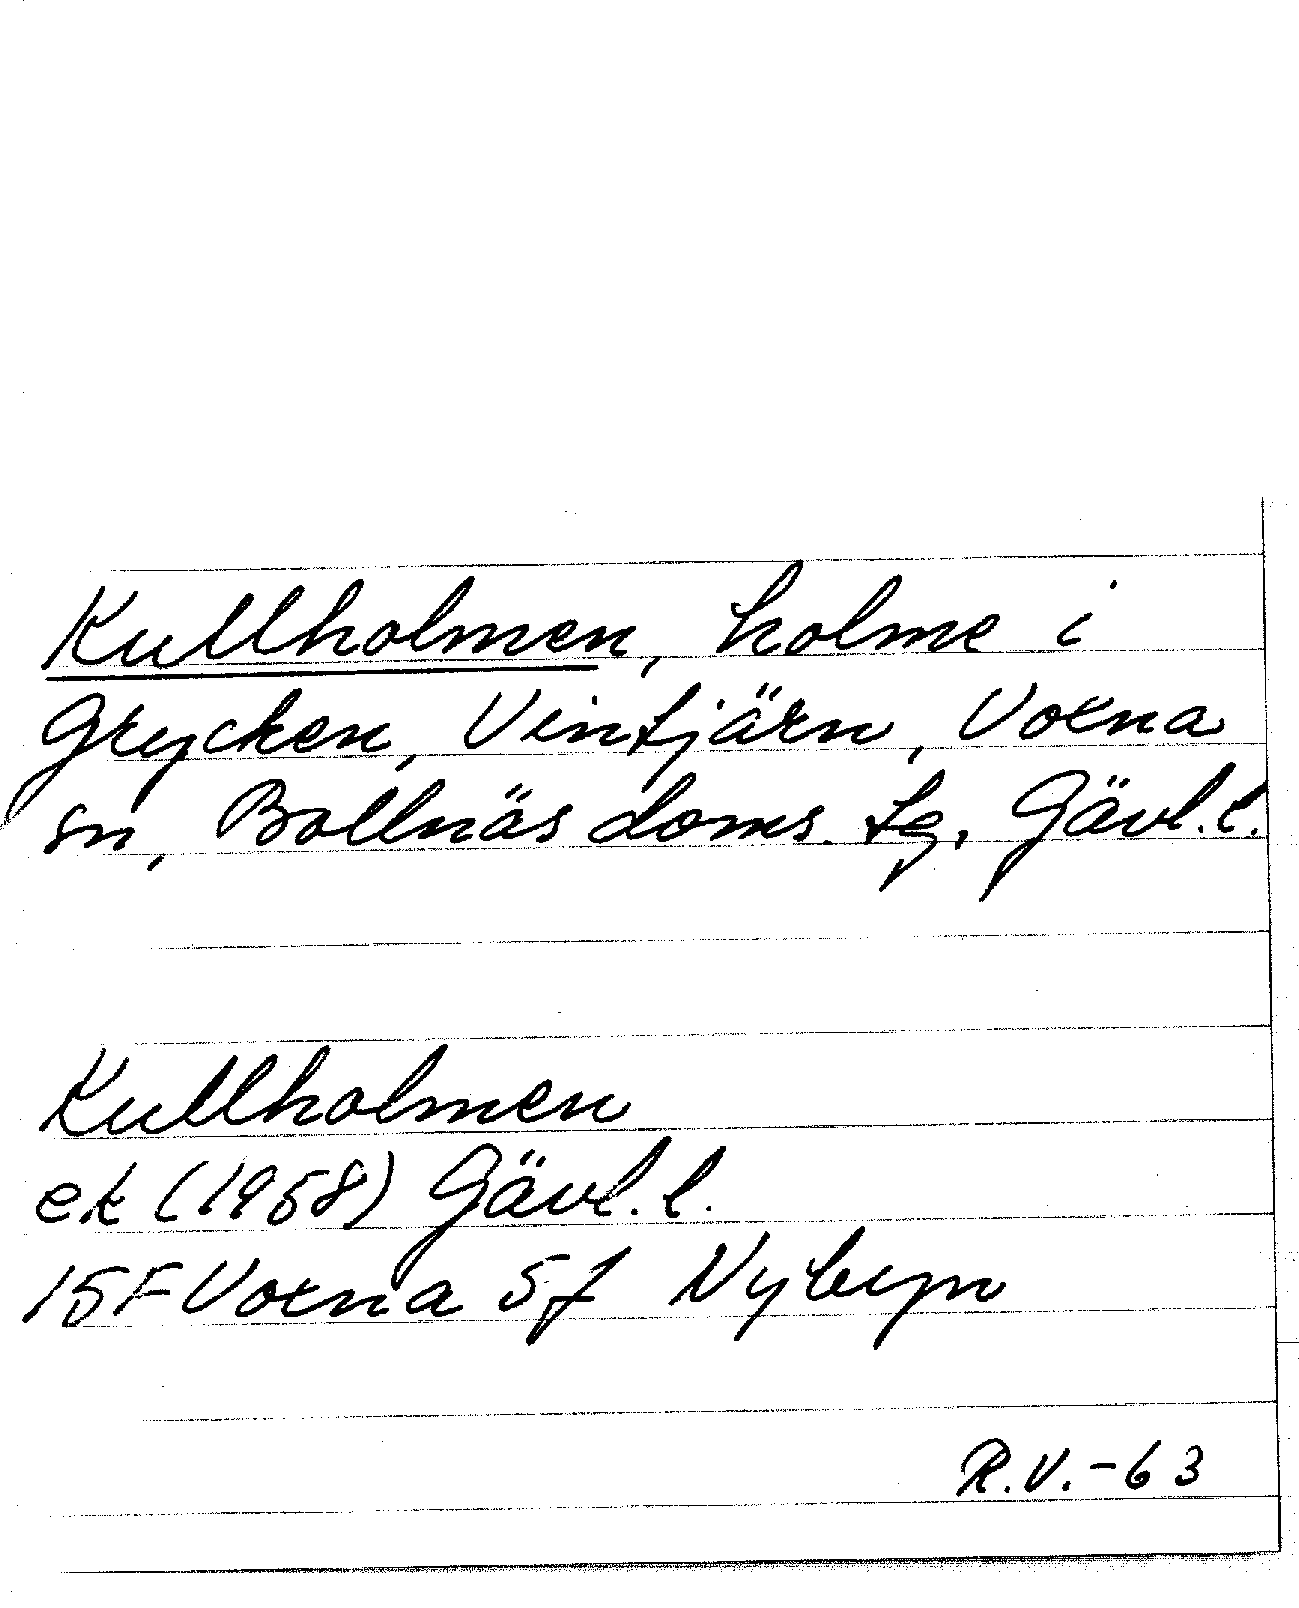 Kullholmen, holme i
Grycken, Vintjärn, Voxna
sn, Bollnäs doms. tg, Gävl.l.
Kullholmen
ek (1958) Gävl.l.
15F Voxna 5f Nybyn
R.V.-63